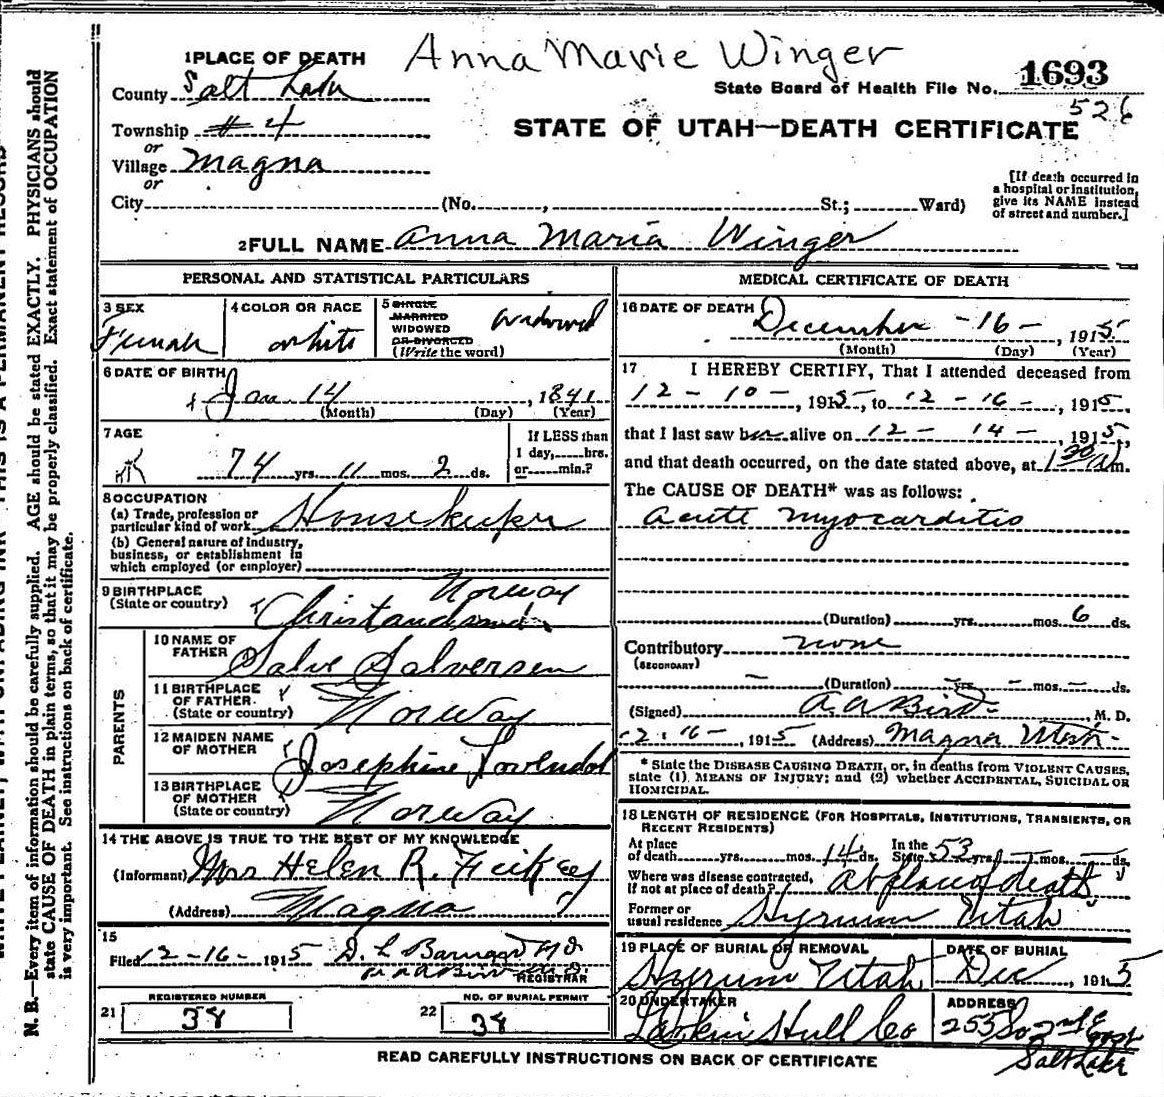 Anna Marie Winger
1 PLACE OF DEATH
State Board of Health File No. 1693
526
County Salt Lake
Township #4
or
Village Magna
or
City (No. , St.; Ward)
STATE OF UTAH—DEATH CERTIFICATE
[If death occurred in
a hospital or institution,
give its NAME instead
of street and number.]
2 FULL NAME Anna Maria Winger
PERSONAL AND STATISTICAL PARTICULARS
3 SEX
Female
4 COLOR OR RACE
white
5 SINGLE
MARRIED
WIDOWED
OR DIVORCED
(Write the word)
widowed
6 DATE OF BIRTH
Jan 14, 1841
(Month) (Day) (Year)
7 AGE
74 yrs. 11 mos. 2 ds.
If LESS than
1 day, hrs.
or min.?
8 OCCUPATION
(a) Trade, profession or
particular kind of work Housekeeper
(b) General nature of industry,
business, or establishment in
which employed (or employer)
9 BIRTHPLACE
(State or country)
Norway
Christiansand
PARENTS
10 NAME OF
FATHER
Salve Salversen
11 BIRTHPLACE
OF FATHER
(State or country)
Norway
12 MAIDEN NAME
OF MOTHER
Josephine
13 BIRTHPLACE
OF MOTHER
(State or country)
Norway
14 THE ABOVE IS TRUE TO THE BEST OF MY KNOWLEDGE
(Informant) Mrs Helen R.
(Address) Magna
15
Filed 12-16-, 1915 D. L. M D
REGISTRAR
REGISTERED NUMBER
21 38
NO. OF BURIAL PERMIT
22 38
MEDICAL CERTIFICATE OF DEATH
16 DATE OF DEATH
December -16-, 1915
(Month) (Day) (Year)
17 I HEREBY CERTIFY, That I attended deceased from
12-10-, 1915, to 12-16-, 1915,
that I last saw her alive on 12-14-, 1915,
and that death occurred, on the date stated above, at 1 30 A m.
The CAUSE OF DEATH* was as follows:
Acute Myocarditis
(Duration) yrs. mos. 6 ds.
Contributory none
(SECONDARY)
- (Duration) - yrs. - mos. - ds.
(Signed) A. A. Bird, M. D.
12-16-, 1915 (Address) Magna Utah
* State the DISEASE CAUSING DEATH, or, in deaths from VIOLENT CAUSES,
state (1) MEANS OF INJURY; and (2) whether ACCIDENTAL, SUICIDAL OR
HOMICIDAL.
18 LENGTH OF RESIDENCE (FOR HOSPITALS, INSTITUTIONS, TRANSIENTS, OR
RECENT RESIDENTS)
At place
of death yrs. mos. 14 ds.
In the
State 53 yrs. - mos. - ds.
Where was disease contracted,
if not at place of death? At place of death
Former or
usual residence Hyrum Utah
19 PLACE OF BURIAL OR REMOVAL
Hyrum Utah
DATE OF BURIAL
Dec, 1915
20 UNDERTAKER
Larkin Hull Co
ADDRESS
255 So 2nd East
Salt Lake
READ CAREFULLY INSTRUCTIONS ON BACK OF CERTIFICATE
N. B.—Every item of information should be carefully supplied. AGE should be stated EXACTLY. PHYSICIANS should
state CAUSE OF DEATH in plain terms, so that it may be properly classified. Exact statement of OCCUPATION
is very important. See instructions on back of certificate.